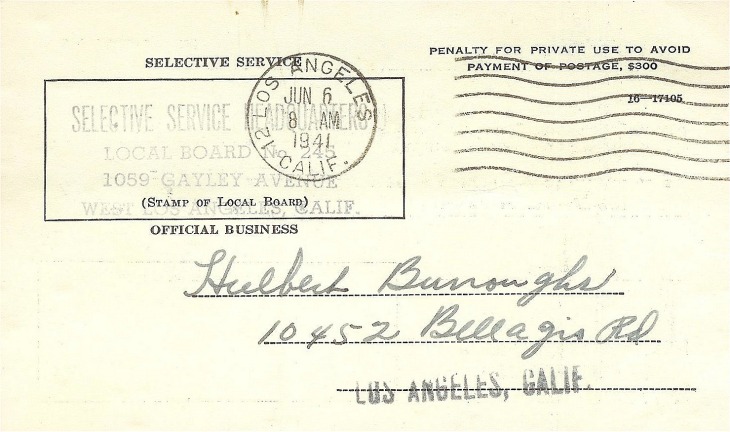 SELECTIVE SERVICE
PENALTY FOR PRIVATE USE TO AVOID
PAYMENT OF POSTAGE, $300
16—17105
LOS ANGELES
12
JUN 6
8 AM
1941
CALIF.
SELECTIVE SERVICE HEADQUARTERS
LOCAL BOARD No. 245
1059 GAYLEY AVENUE
WEST LOS ANGELES, CALIF.
(STAMP OF LOCAL BOARD)
OFFICIAL BUSINESS
Hulbert Burroughs
10452 Bellagio Rd
LOS ANGELES, CALIF.